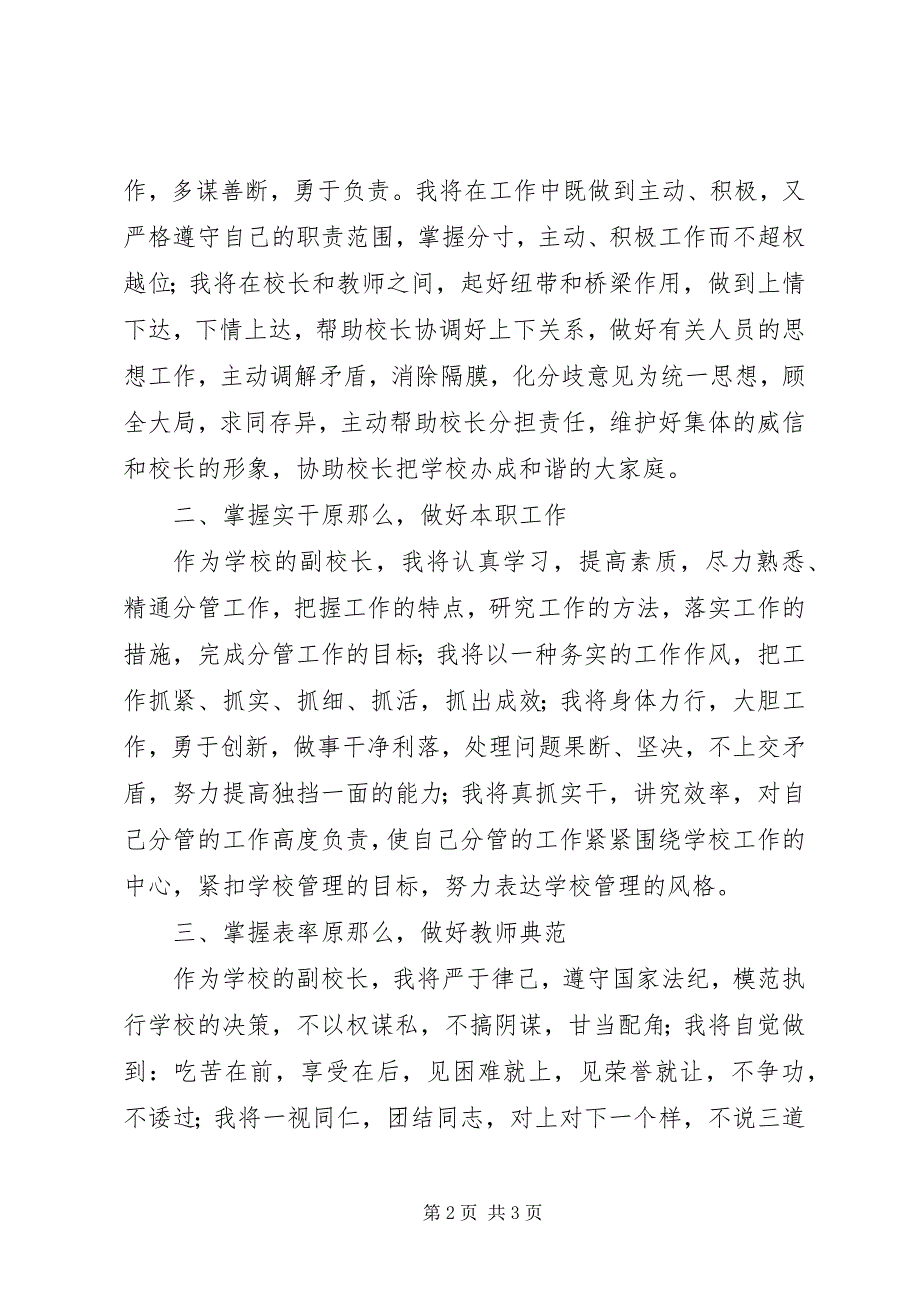 作，多谋善断，勇于负责。我将在工作中既做到主动、积极，又
严格遵守自己的职责范围，掌握分寸，主动、积极工作而不超权
越位；我将在校长和教师之间，起好纽带和桥梁作用，做到上情
下达，下情上达，帮助校长协调好上下关系，做好有关人员的思
想工作，主动调解矛盾，消除隔膜，化分歧意见为统一思想，顾
全大局，求同存异，主动帮助校长分担责任，维护好集体的威信
和校长的形象，协助校长把学校办成和谐的大家庭。
二、掌握实干原那么，做好本职工作
作为学校的副校长，我将认真学习，提高素质，尽力熟悉、
精通分管工作，把握工作的特点，研究工作的方法，落实工作的
措施，完成分管工作的目标；我将以一种务实的工作作风，把工
作抓紧、抓实、抓细、抓活，抓出成效；我将身体力行，大胆工
作，勇于创新，做事干净利落，处理问题果断、坚决，不上交矛
盾，努力提高独挡一面的能力；我将真抓实干，讲究效率，对自
己分管的工作高度负责，使自己分管的工作紧紧围绕学校工作的
中心，紧扣学校管理的目标，努力表达学校管理的风格。
三、掌握表率原那么，做好教师典范
作为学校的副校长，我将严于律己，遵守国家法纪，模范执
行学校的决策，不以权谋私，不搞阴谋，甘当配角；我将自觉做
到：吃苦在前，享受在后，见困难就上，见荣誉就让，不争功，
不诿过；我将一视同仁，团结同志，对上对下一个样，不说三道
第 2 页 共 3 页